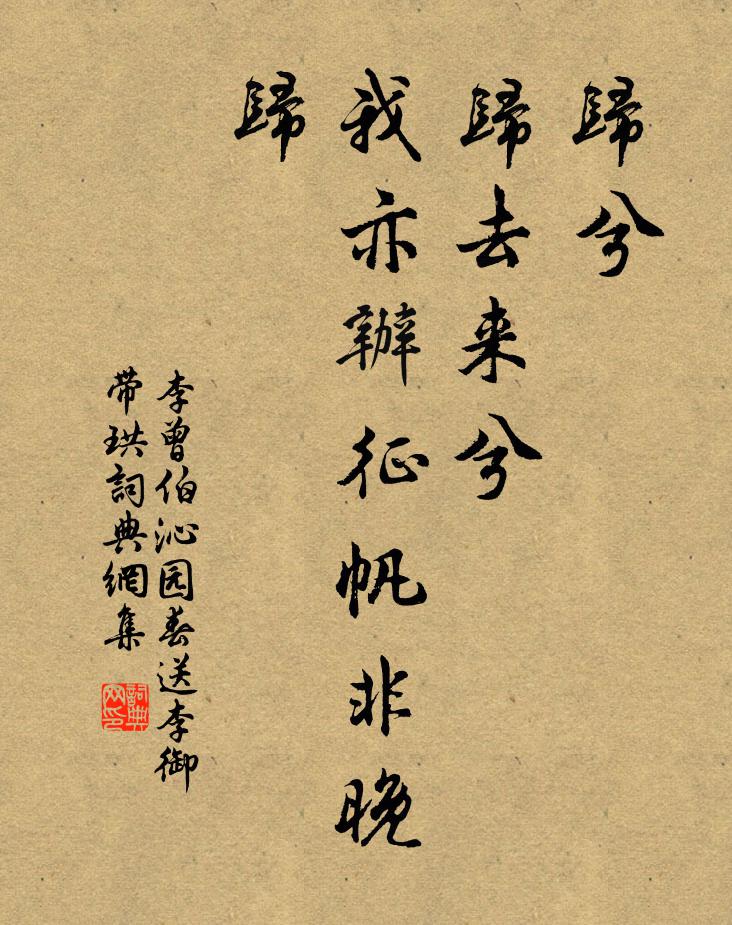 歸兮
歸去来兮
我亦辦征帆非晚
歸
李曾伯沁园春送李御
带珙詞典網集
詞典
网印